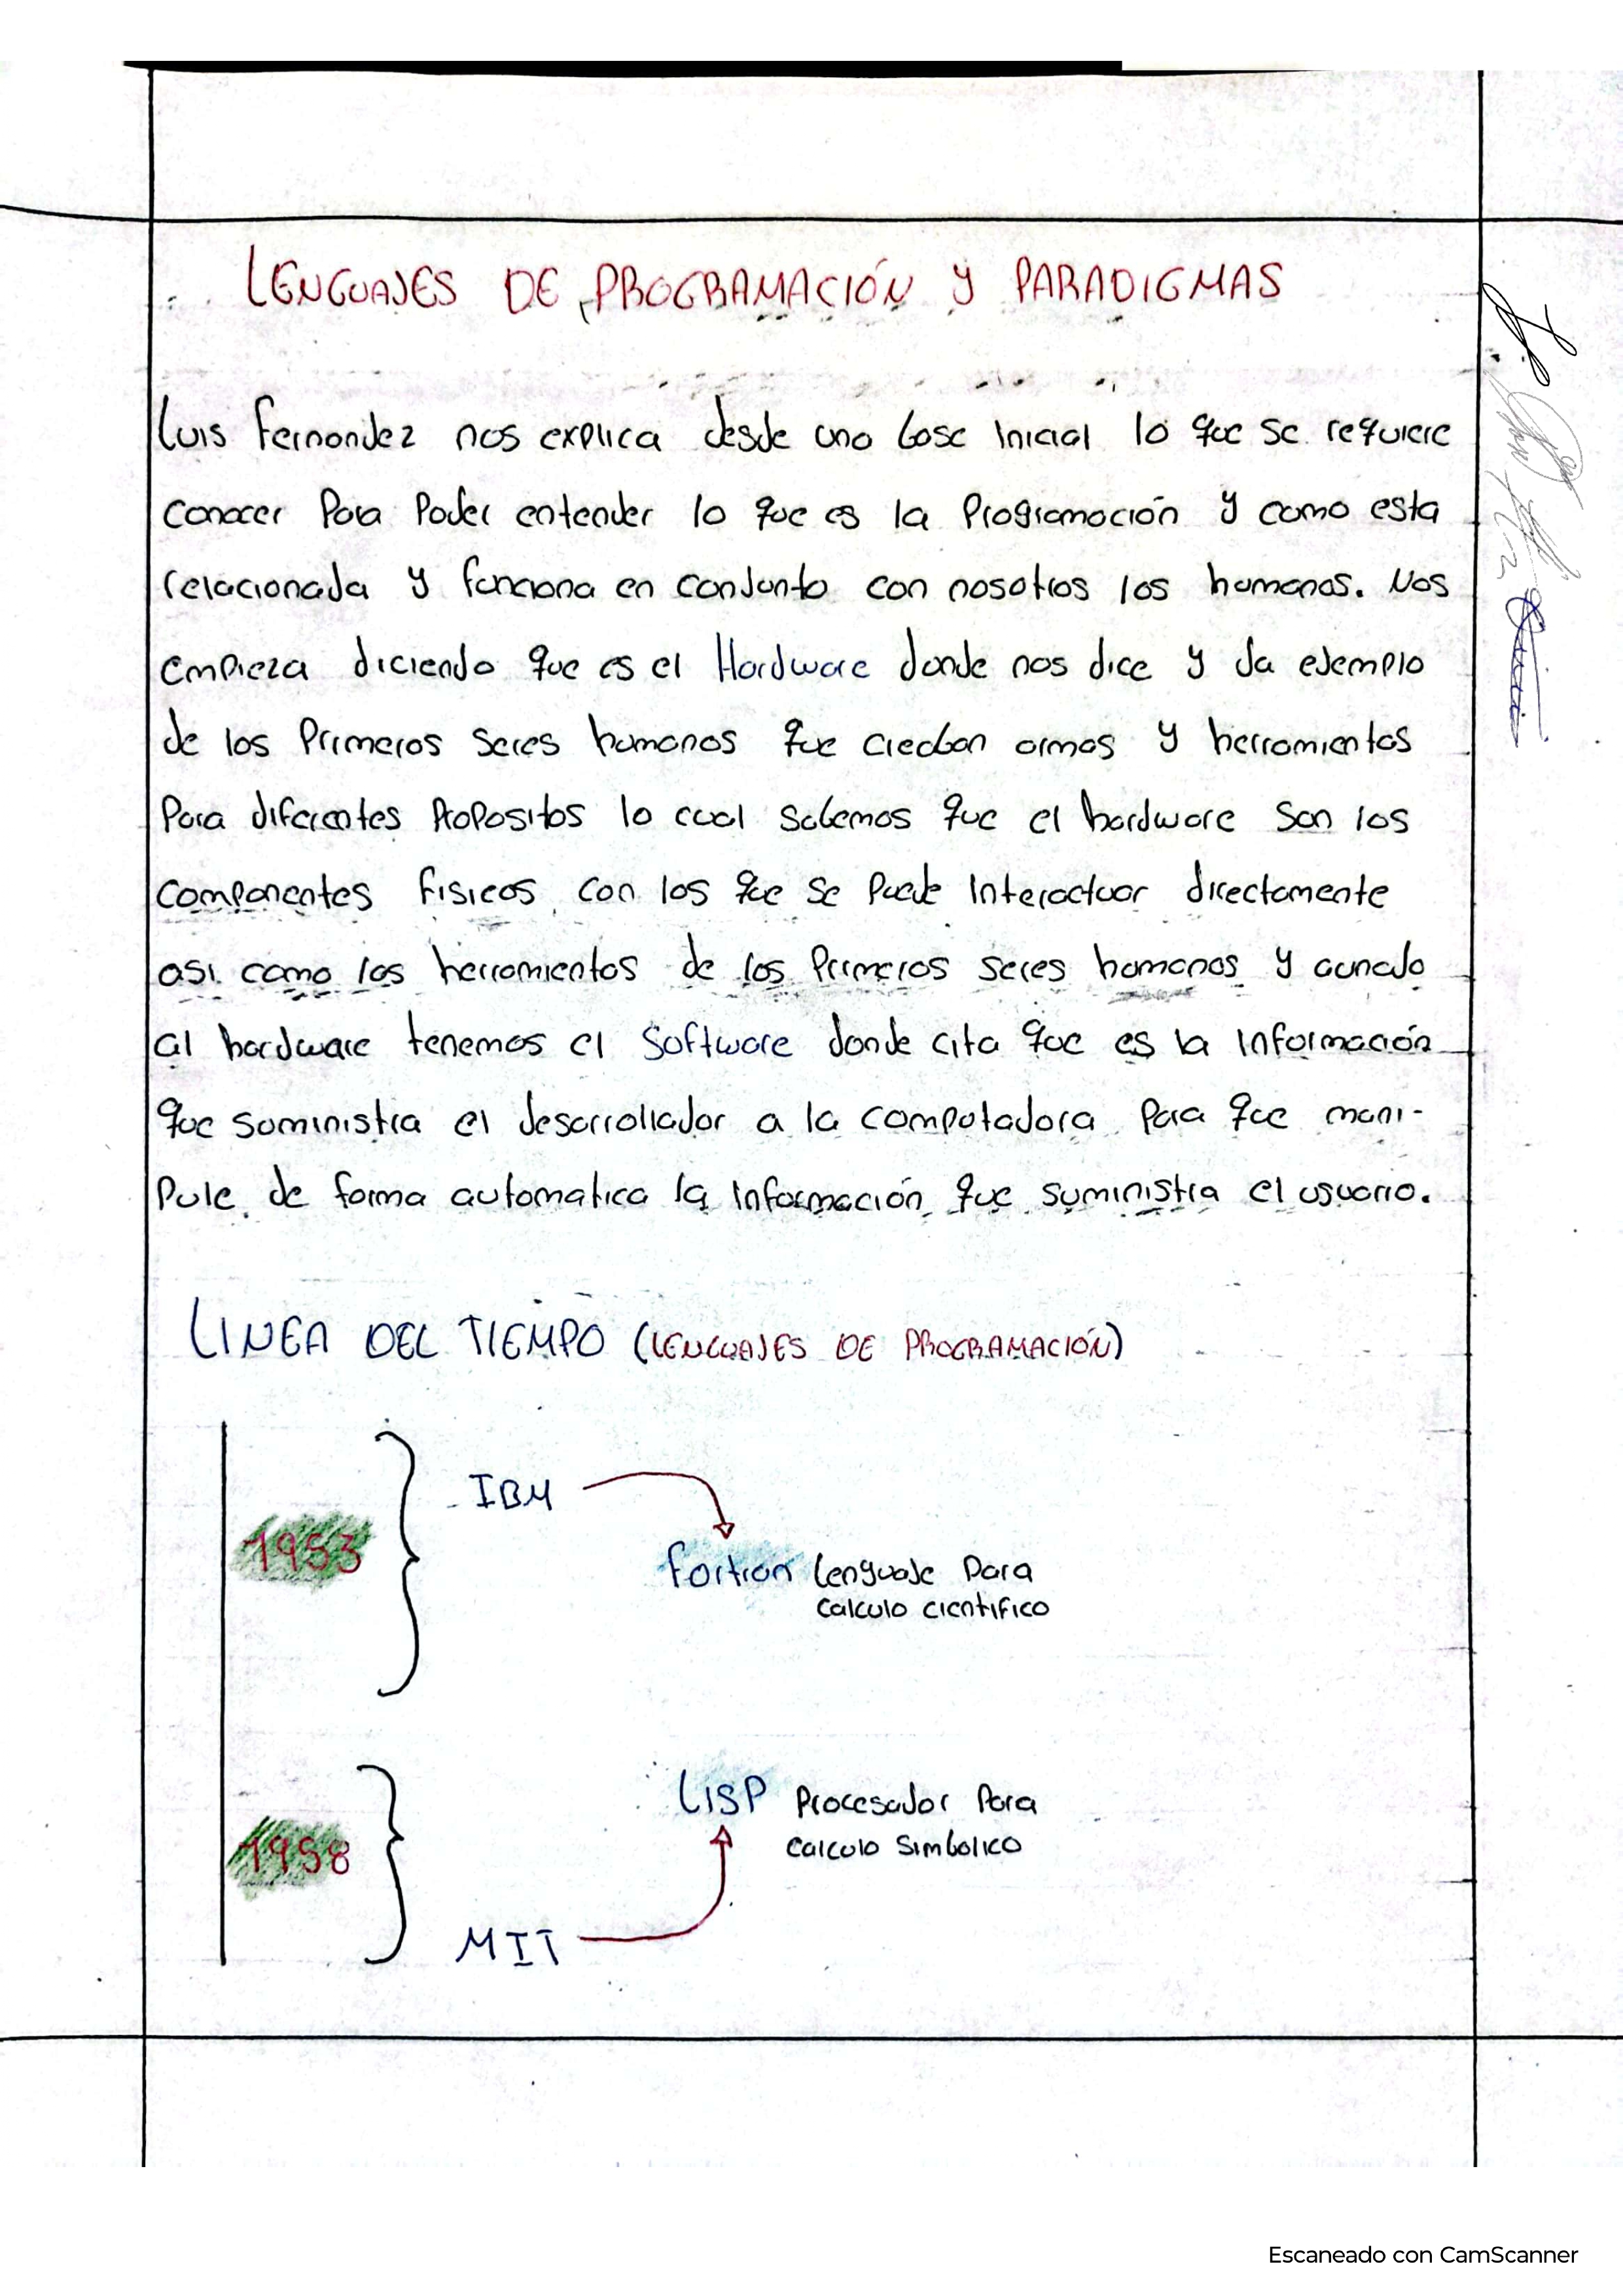 LENGUAJES DE PROGRAMACIÓN Y PARADIGMAS
Luis Fernandez nos explica desde una base inicial lo que se requiere
conocer para poder entender lo que es la programación y como esta
relacionada y funciona en conjunto con nosotros los humanos. Nos
empieza diciendo que es el Hardware donde nos dice y da ejemplo
de los primeros seres humanos que creaban armas y herramientas
para diferentes propositos lo cual sabemos que el hardware son los
componentes fisicos con los que se puede interactuar directamente
asi como las herramientas de los primeros seres humanos y aunado
al hardware tenemos el Software donde cita que es la información
que suministra el desarrollador a la computadora para que mani-
pule de forma automatica la información que suministra el usuario.
LINEA DEL TIEMPO (LENGUAJES DE PROGRAMACIÓN)
1953
IBM
Fortran Lenguaje para
calculo cientifico
1958
LISP Procesador para
calculo simbolico
MIT
Escaneado con CamScanner